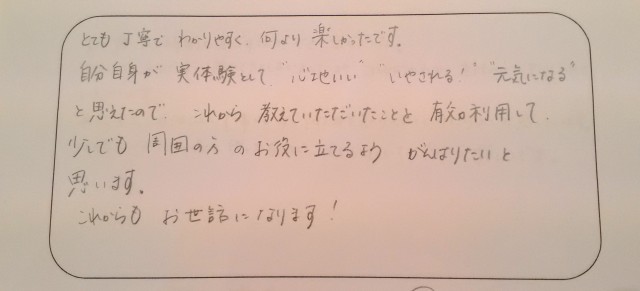 とても丁寧で わかりやすく、何より 楽しかったです。
自分自身が 実体験として、"心地いい" "いやされる!" "元気になる"
と思えたので、これから 教えていただいたことを 有効利用して、
少しでも 周囲の方 のお役に立てるよう がんばりたいと
思います。
これからも お世話になります!